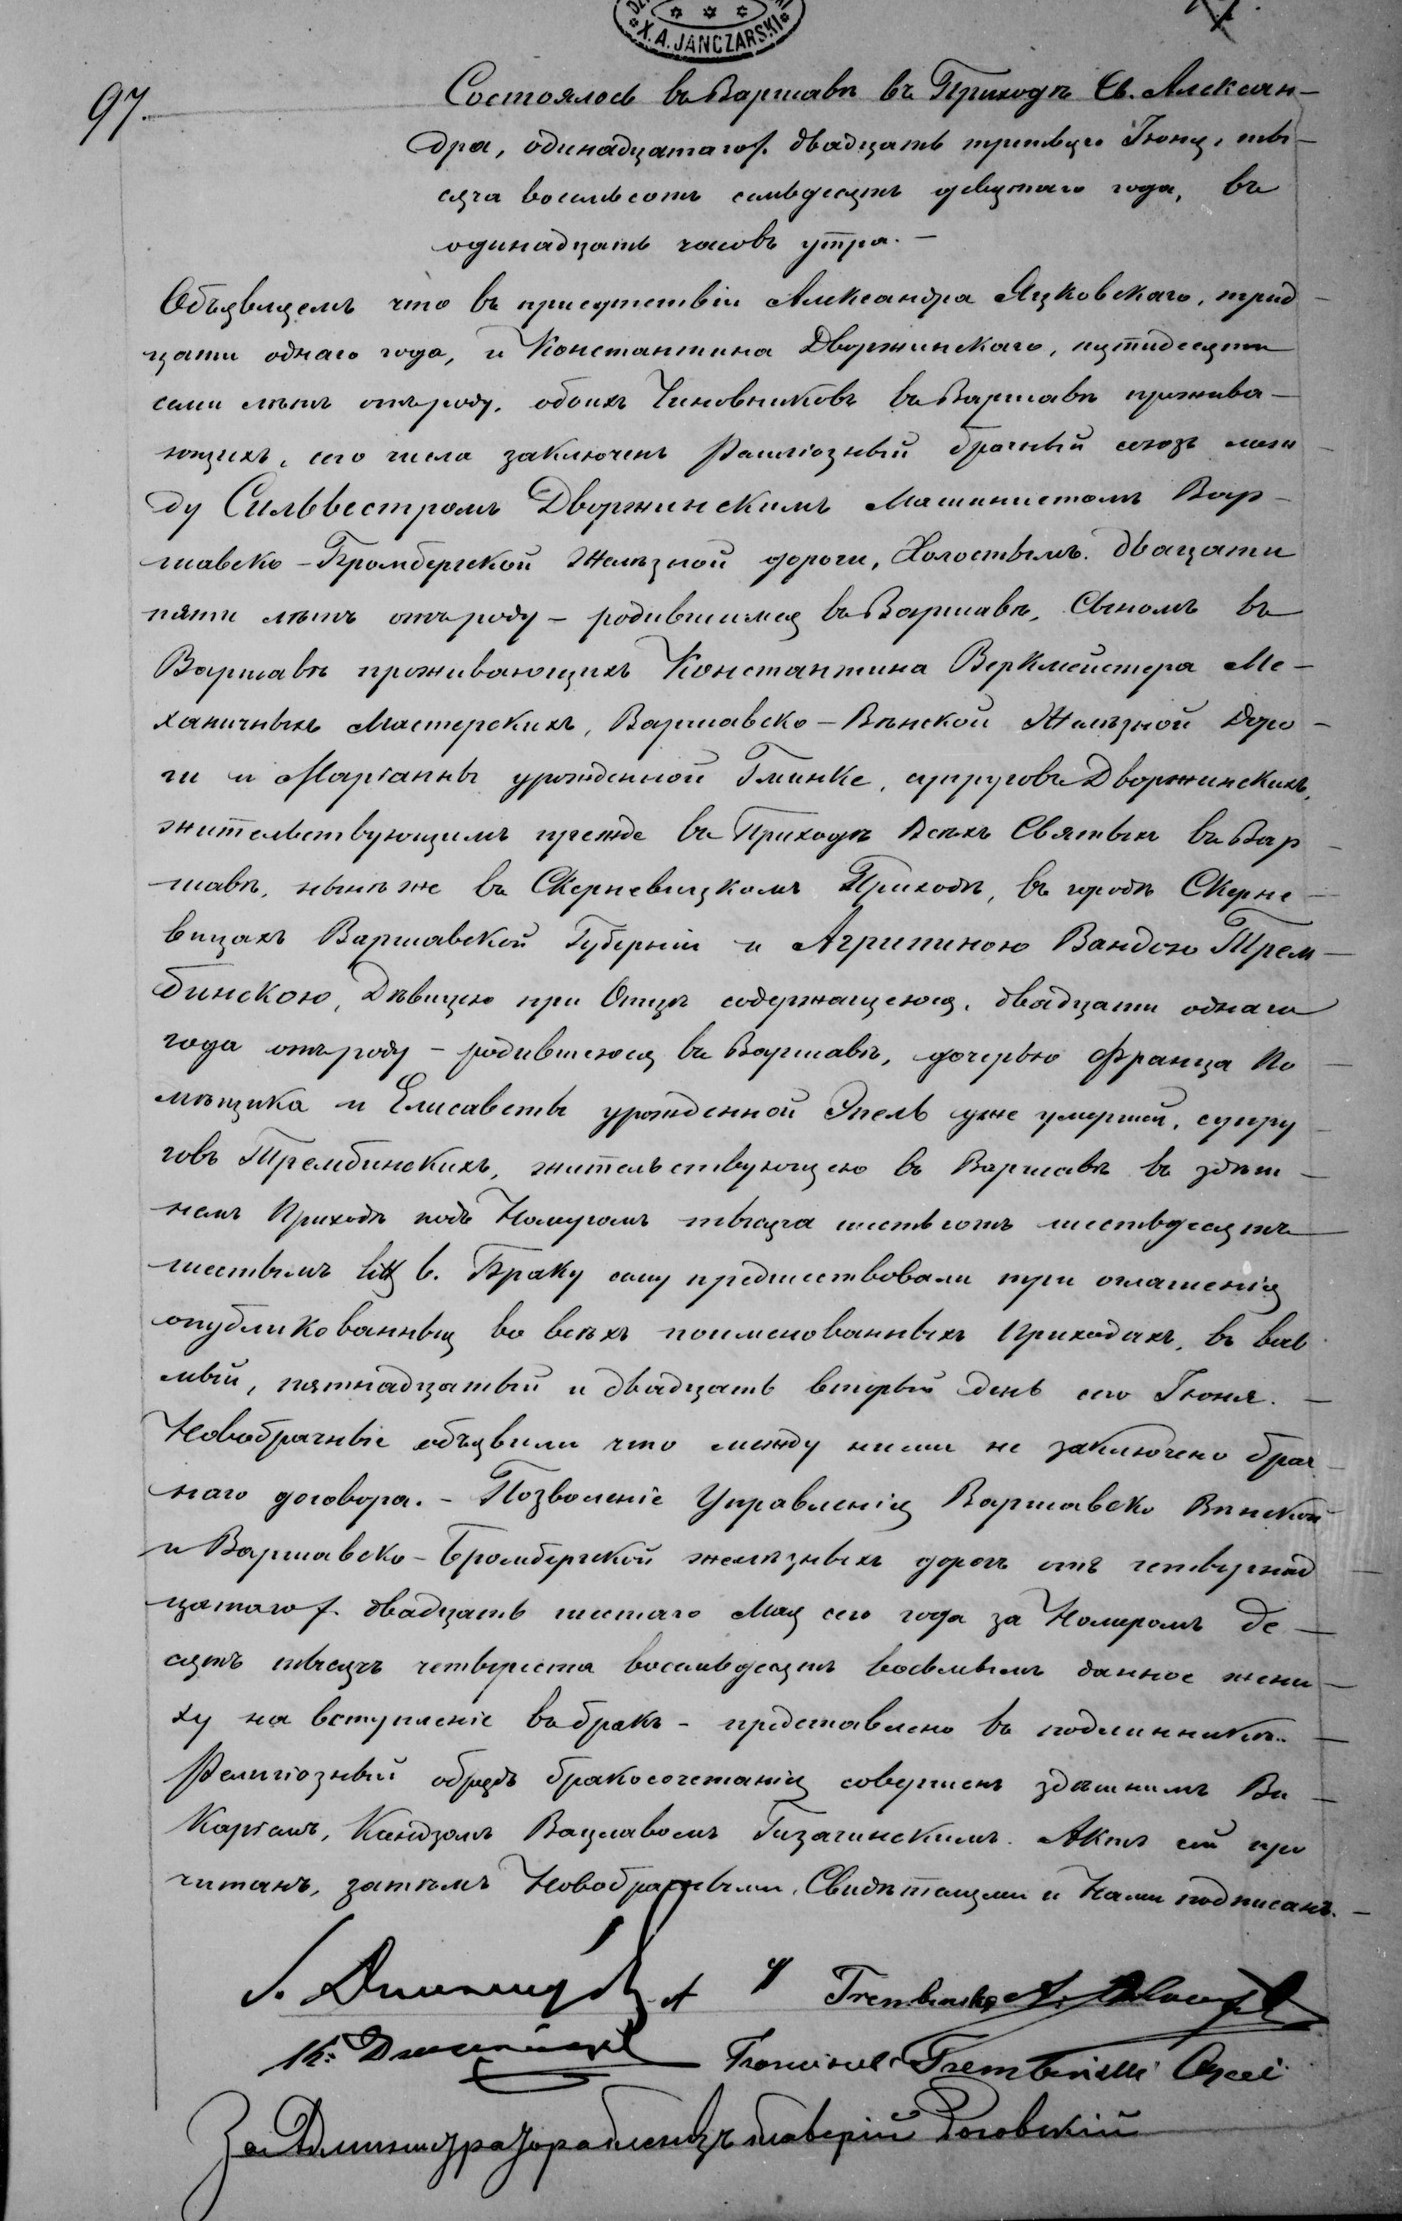 X. A. JANCZARSKI
97.
Состоялось въ Варшавѣ въ Приходѣ Св. Алексан-
дра, одинадцатаго/. двадцать третьяго Іюня, ты-
сяча восемьсотъ семьдесятъ девятаго года, въ
одинадцать часовъ утра. -
Объявляемъ что въ присутствіи Александра Яцковскаго, трид-
цати однаго года, и Константина Дворжинскаго, пятидесяти
семи лѣтъ отъ роду, обоихъ Чиновниковъ въ Варшавѣ прожива-
ющихъ, сего числа заключенъ Религіозный брачный союзъ меж-
ду Сильвестромъ Дворжинскимъ Машинистомъ Вар-
шавско-Бромбергской Желѣзной дороги, Холостымъ. двацати
пяти лѣтъ отъ роду - родившимся въ Варшавѣ, Сыномъ въ
Варшавѣ проживающихъ Константина Веркмейстера Ме-
ханичныхъ Мастерскихъ, Варшавско-Вѣнской Желѣзной Доро-
ги и Маріанны урожденной Глинке, супруговъ Дворжинскихъ,
жительствующимъ прежде въ Приходѣ Всѣхъ Святыхъ въ Вар-
шавѣ, нынѣ же въ Скерневицкомъ Приходѣ, въ городѣ Скерне-
вицахъ Варшавской Губерніи и Агрипиною Вандою Трем-
бинскою, Дѣвицею при Отцѣ содержащеюся, двадцати однаго
года отъ роду - родившеюся въ Варшавѣ, дочерью Франца По-
мѣщика и Елисаветы урожденной Эпель уже умершей, супру-
говъ Трембинскихъ, жительствующею въ Варшавѣ въ здѣш-
немъ Приходѣ подъ Номеромъ тысяча шестьсотъ шестьдесятъ
шестымъ litt b. Браку сему предшествовали три оглашенія
опубликованныя во всѣхъ поименованныхъ Приходахъ, въ вось
мый, пятнадцатый и двадцать вторый день сего Іюня. -
Новобрачные объявили что между ними не заключено брач-
наго договора. - Позволеніе Управленія Варшавско Вѣнской
и Варшавско-Бромбергской желѣзныхъ дорогъ отъ четырнад
цатаго/. двадцать шестаго Мая сего года за Номеромъ де-
сять тысячъ четыреста восемьдесятъ восьмымъ данное жени-
ху на вступленіе въ бракъ - представлено въ подлинникѣ. -
Религіозный обрядъ бракосочетанія совершенъ здѣшнимъ Ви-
каріемъ, Ксендзомъ Вацлавомъ. Актъ сей про
читанъ, затѣмъ Новобрачными, Свидѣтелями и Нами подписанъ. -
S.
Trembinska
K.
Franciszek Trembinski Ojciec
За Администратора Роговскій